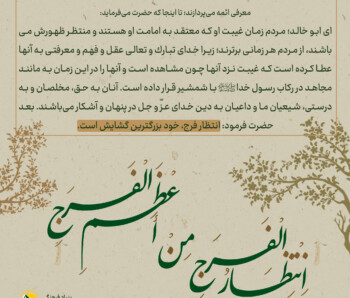 معرفی ائمه می‌پردازند؛ تا اینجا که حضرت می‌فرماید:
ای ابو خالد؛ مردم زمان غیبت او که معتقد به امامت او هستند و منتظر ظهورش می
باشند، از مردم هر زمانی برترند؛ زیرا خدای تبارک و تعالی عقل و فهم و معرفتی به آنها
عطا کرده است که غیبت نزد آنها چون مشاهده است و آنها را در این زمان به مانند
مجاهد در رکاب رسول خداﷺ با شمشیر قرار داده است. آنان به حق، مخلصان و به
درستی، شیعیان ما و داعیان به دین خدای عزّ و جل در پنهان و آشکار می‌باشند. بعد
حضرت فرمود: انتظار فرج، خود بزرگترین گشایش است.
انْتِظارُ الفَرَجِ مِنْ أَعْظَمِ الفَرَجِ